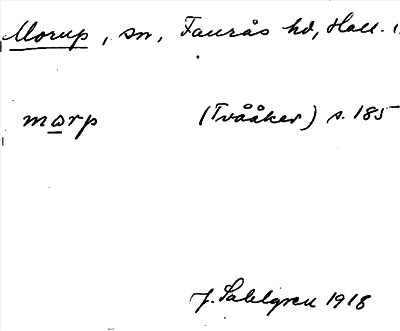 Morup, sn, Faurås hd, Hall.
mɷrp (Tvååker) s. 185
J. Sahlgren 1918